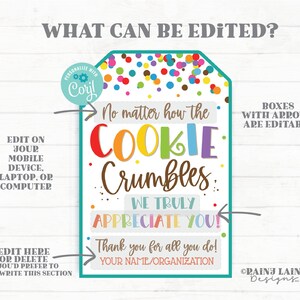 WHAT CAN BE EDITED?
PERSONALIZE WITH
Corjl
No matter how the
COOKIE
Crumbles
WE TRULY
APPRECIATE YOU!
Thank you for all you do!
YOUR NAME/ORGANIZATION
EDIT ON
YOUR
MOBILE
DEVICE,
LAPTOP, OR
COMPUTER
BOXES
WITH ARROW
ARE EDITAB
EDIT HERE
OR DELETE
YOU'D PREFER TO
WRITE THIS SECTION
©RAINY LAIN
Designs